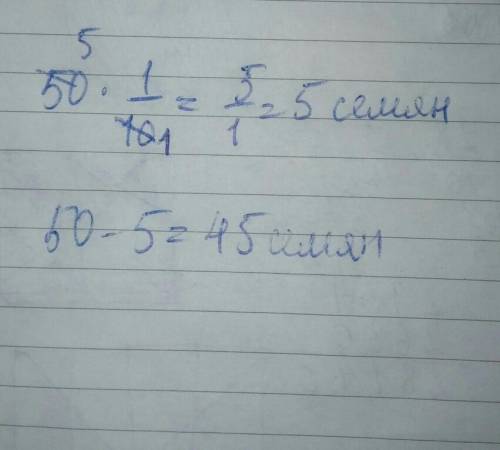 5
50 · 1/10 1 = 5/1 = 5 семян
50 - 5 = 45 семян